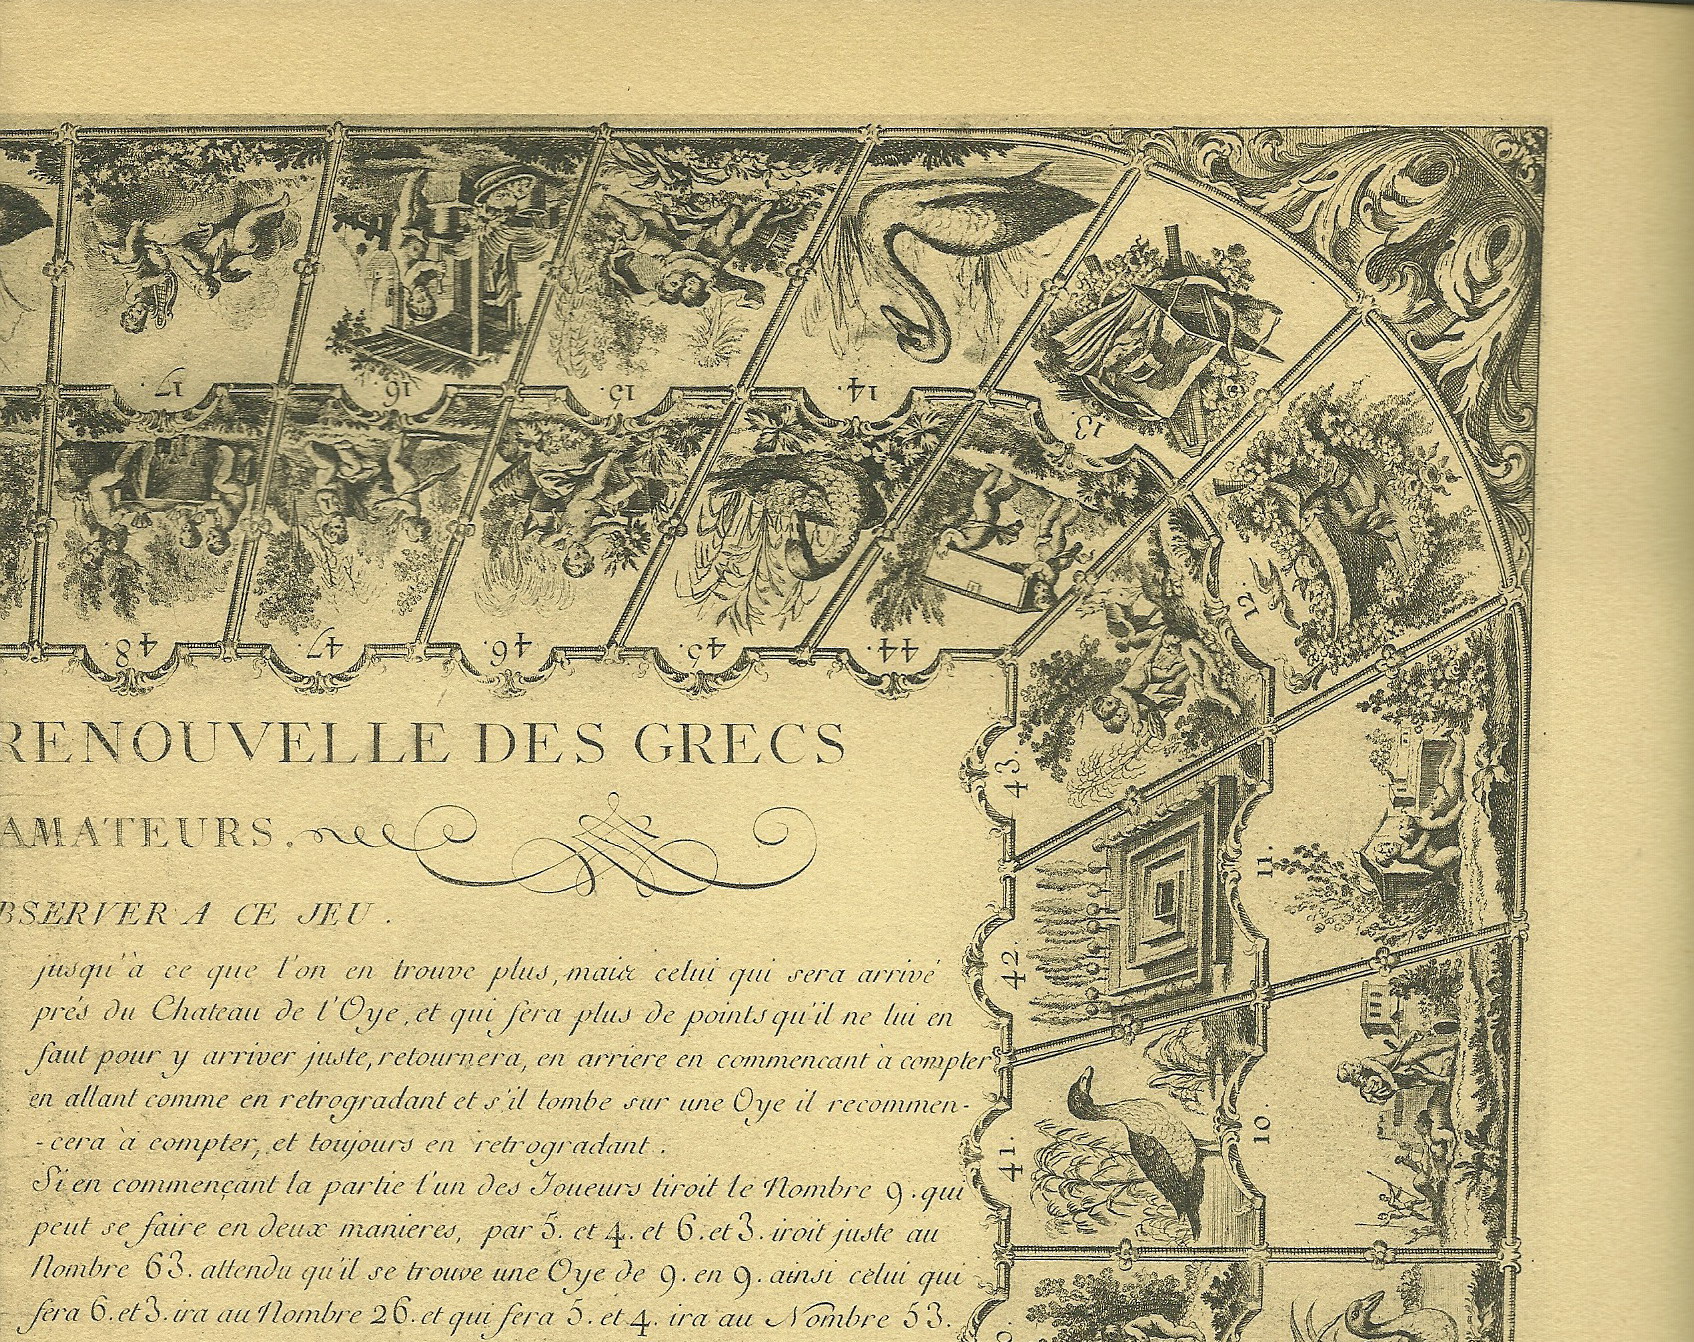 17.
16.
15.
14.
13.
12.
11.
10.
48.
47.
46.
45.
44.
43.
42.
41.
RENOUVELLE DES GRECS
AMATEURS.
BSERVER A CE JEU.
jusqu'à ce que l'on en trouve plus, mais celui qui sera arrivé
prés du Chateau de l'Oye, et qui fera plus de points qu'il ne lui en
faut pour y arriver juste, retournera, en arriere en commencant à compter
en allant comme en retrogradant et s'il tombe sur une Oye il recommen-
-cera à compter, et toujours en retrogradant.
Si en commençant la partie l'un des Joueurs tiroit le Nombre 9. qui
peut se faire en deux manieres, par 5. et 4. et 6. et 3. iroit juste au
Nombre 63. attendu qu'il se trouve une Oye de 9. en 9. ainsi celui qui
fera 6. et 3. ira au Nombre 26. et qui fera 5. et 4. ira au Nombre 53.